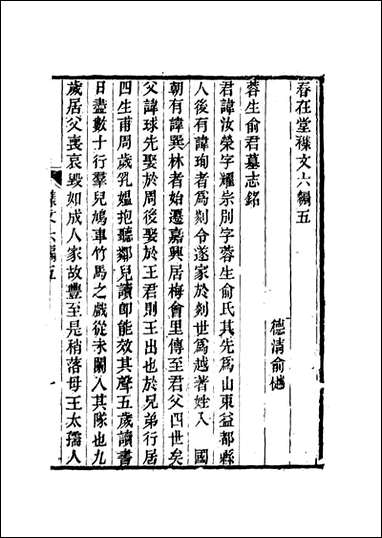 春在堂襍文六編五
德清俞樾
蓉生俞君墓志銘
君諱汝榮字耀宗別字蓉生俞氏其先爲山東益都縣
人後有諱珣者爲剡令遂家於剡世爲越著姓入　國
朝有諱巽林者始遷嘉興居梅會里傳至君父四世矣
父諱球先娶於周後娶於王君則王出也於兄弟行居
四生甫周歲乳媼抱聽鄰兒讀卽能效其聲五歲讀書
日盡數十行羣兒鳩車竹馬之戲從未闌入其隊也九
歲居父喪哀毀如成人家故豐至是稍落母王太孺人
襍文六編五
一